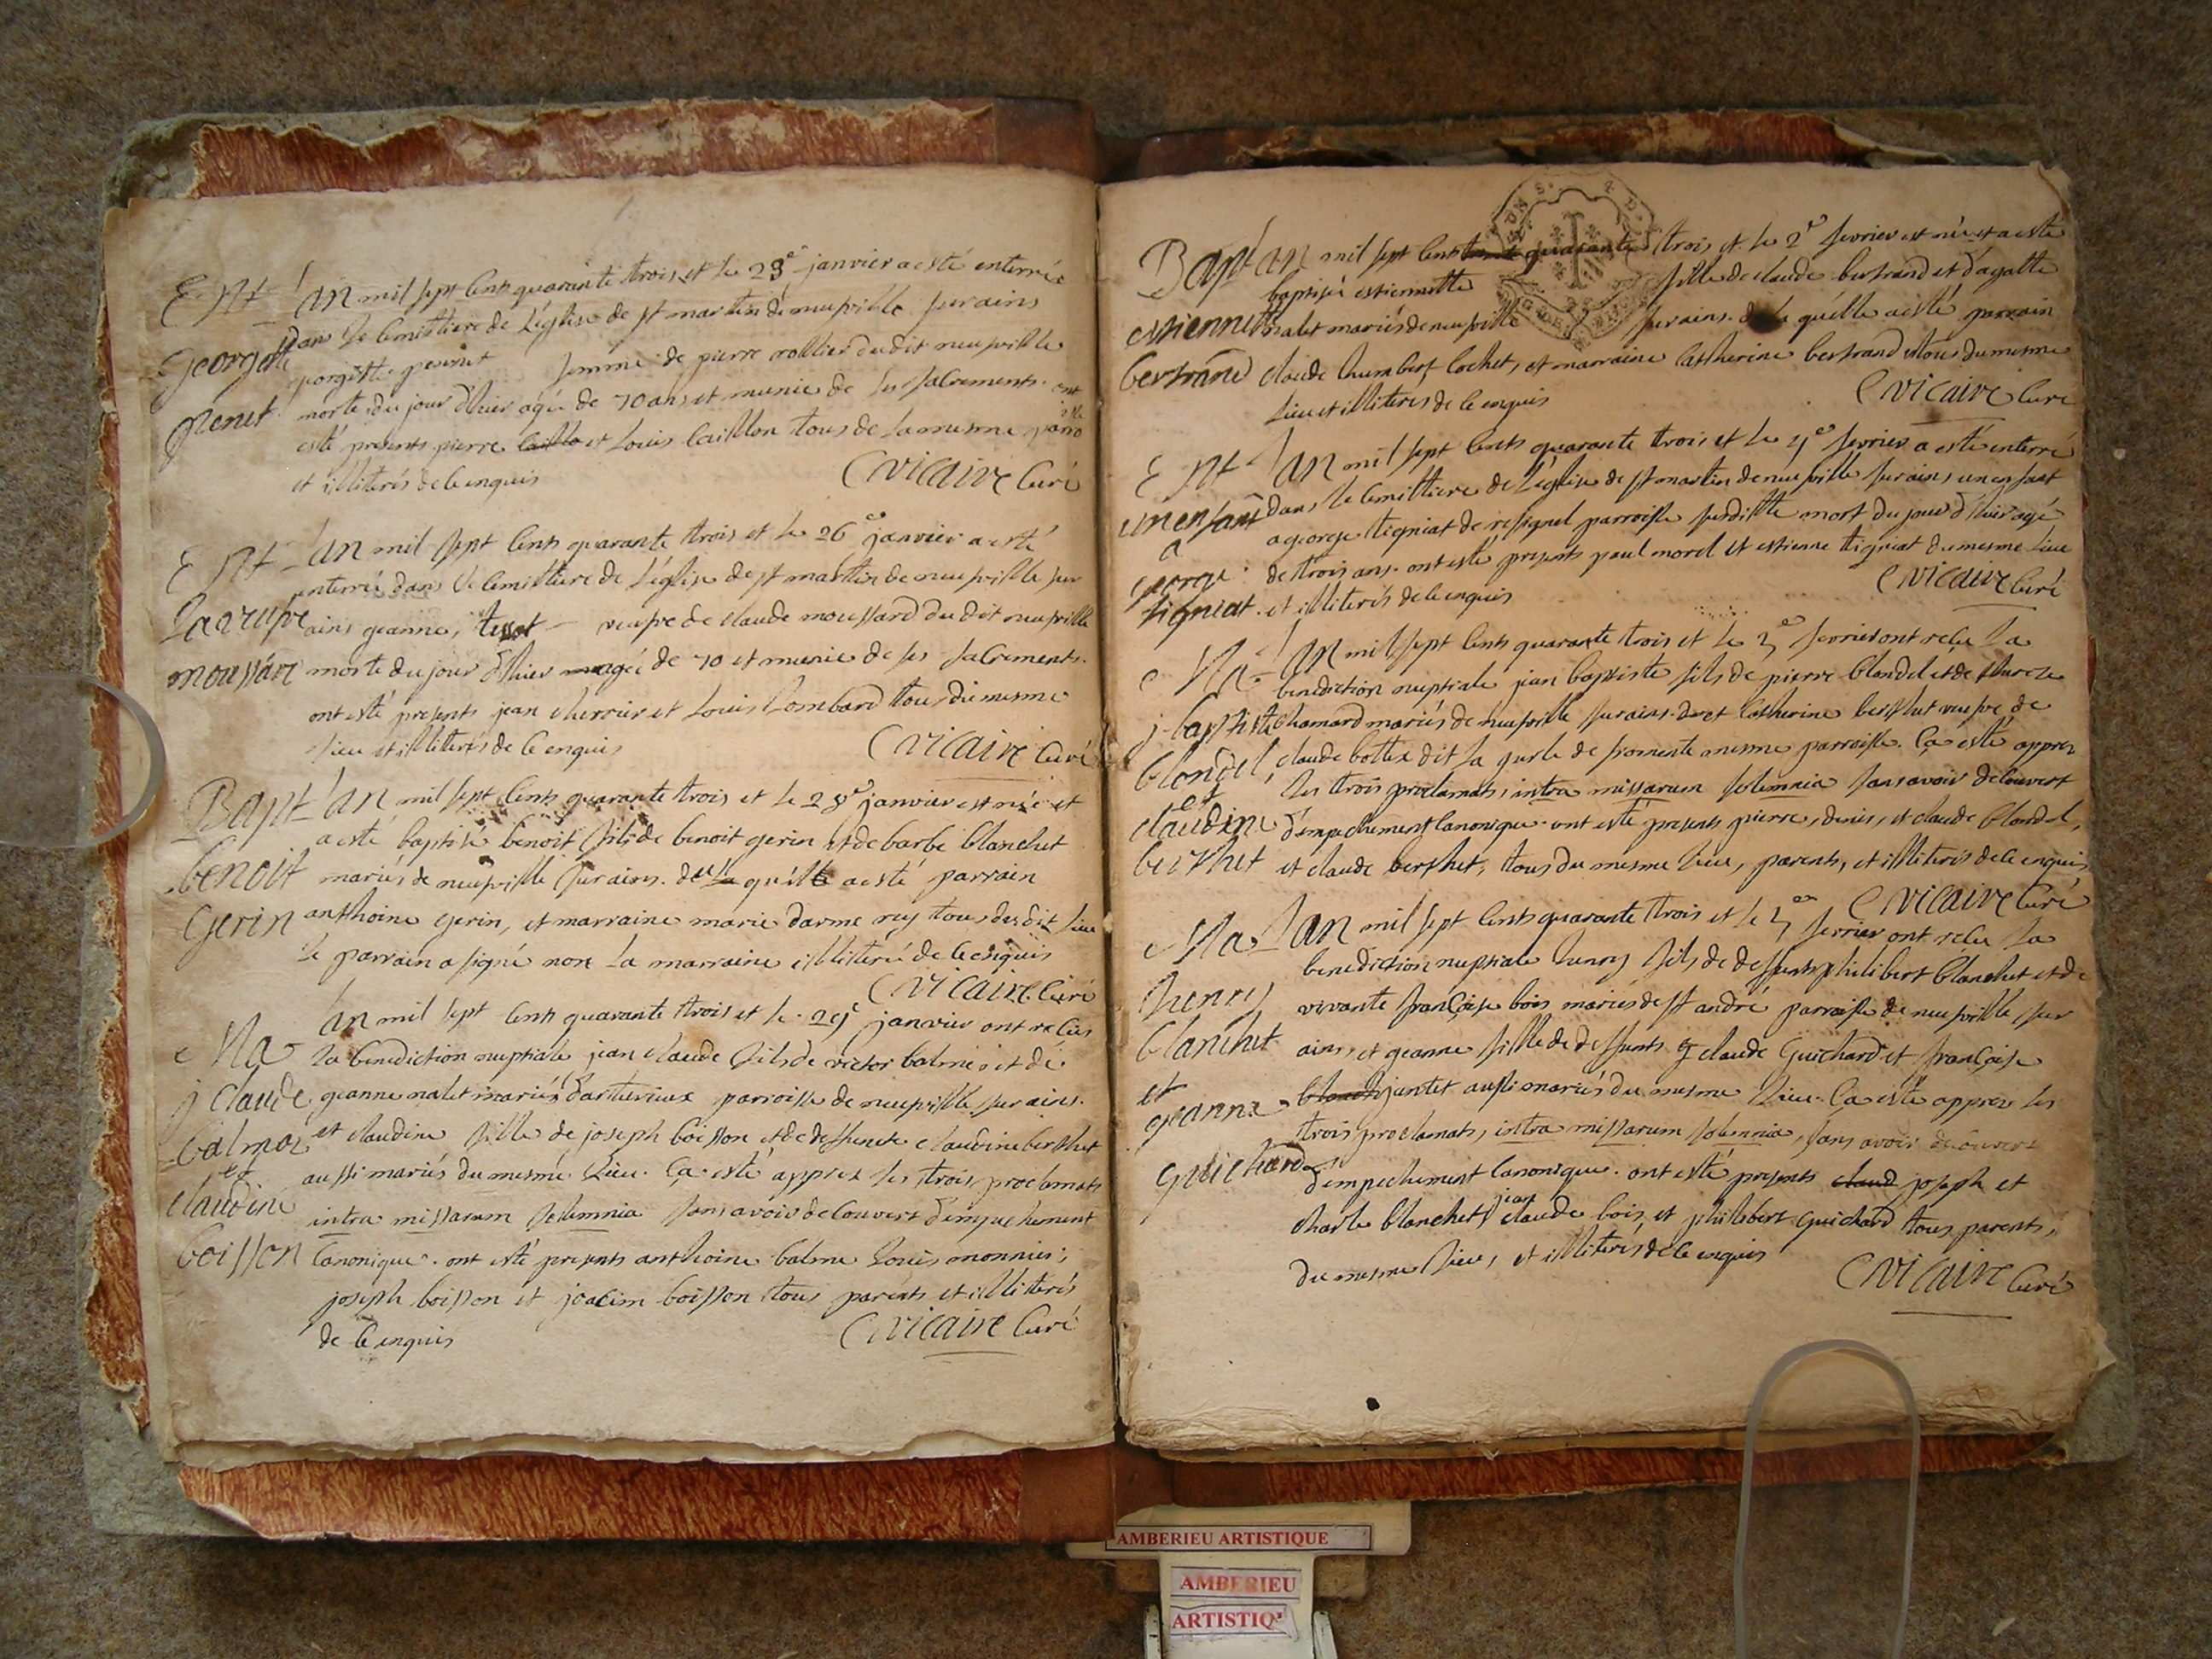 Ent
georgette
genet
L'an mil sept cents quarante trois et le 23e janvier a esté enterrée
dans le cemittiere de L'église de st martin de neufville sur ains
georgette genet femme de pierre rollier dudit neufville
morte du jour d'hier agée de 70 ans et munie de ses sacrements. ont
esté presents pierre et Louis Caillon tous de la mesme
et illiterés de ce enquis
C vicaire Curé
Ent
La veufve
moussard
L'an mil sept cents quarante trois et le 26e janvier a esté
enterrée dans le cemittiere de L'église de st martin de neufville sur
ains geanne tissot veufve de claude moussard du dit neufville
morte du jour d'hier agée de 70 et munie de ses sacrements.
ont esté presents jean cherrier et Louis Lombard tous du mesme
lieu et illiterés de ce enquis
C vicaire Curé
Bapt
benoit
gerin
L'an mil sept cents quarante trois et le 28e janvier est née et
a esté baptisé benoit fils de benoit gerin et de barbe blanchet
mariés de neufville sur ains. du quel a esté parrain
anthoine gerin, et marraine marie darme rey tous dudit lieu
le parrain a signé non la marraine illiterée de ce enquis
C vicaire Curé
Ma
j claude
balme
et
claudine
boisson
L'an mil sept cents quarante trois et le 29e janvier ont reçeu
la benediction nuptiale jean claude fils de victor balme et de
geanne nalet mariés d'arturieux parroisse de neufville sur ains.
et claudine fille de joseph boisson et de deffunte claudine berthet
aussi mariés du mesme lieu. Ça esté apprez les trois proclamats
intra missarum solemnia sans avoir decouvert d'empechement
canonique. ont esté presents anthoine balme Louis monnier,
joseph boisson et joacim boisson tous parents et illiterés
de ce enquis
C vicaire Curé
Bapt
estiennette
bertrand
L'an mil sept cents quarante trois et le 2e fevrier est née et a esté
baptisée estiennette fille de claude bertrand et d'agatte
nalet mariés de neufville sur ains. de la quelle a esté parrain
claude humbert cochet, et marraine catherine bertrand tous du mesme
lieu et illiteres de ce enquis
C vicaire Curé
Ent
un enfant
a
george
tigniat
L'an mil sept cents quarante trois et le 4e fevrier a esté enterré
dans le cemittiere de L'église de st martin de neufville sur ains, un enfant
a george tigniat de resignel parroisse susditte mort du jour d'hier agé
de trois ans. ont esté presents paul morel et estienne tigniat du mesme lieu
et illiterés de ce enquis
C vicaire Curé
Ma
j baptiste
blondel,
et
claudine
berthet
L'an mil sept cents quarante trois et le 5e fevrier ont reçeu la
benediction nuptiale jean baptiste fils de pierre blondel et de
chamard mariés de neufville sur ains. et catherine berthet veufve de
claude bottex dit la de fromente mesme parroisse. Ça esté apprez
les trois proclamats, intra missarum solemnia sans avoir decouvert
d'empechement canonique. ont esté presents pierre, denis, et claude blondel,
et claude berthet, tous du mesme lieu, parents, et illiterés de ce enquis
C vicaire Curé
Ma
henry
blanchet
et
geanne
guichard
L'an mil sept cents quarante trois et le 5e fevrier ont reçeu la
benediction nuptiale henry fils de deffunt philibert blanchet et de
vivante françoise bois mariés de st andré parroisse de neufville sur
ains, et geanne fille de deffunts claude guichard et françoise
jantet aussi mariés du mesme lieu. Ça esté apprez les
trois proclamats, intra missarum solemnia, sans avoir decouvert
d'empechement canonique. ont esté presents claud joseph et
charle blanchet, jean claude bois, et philebert guichard tous parents,
du mesme lieu, et illiterés de ce enquis
C vicaire Curé
AMBERIEU ARTISTIQUE
AMBERIEU
ARTISTIQ